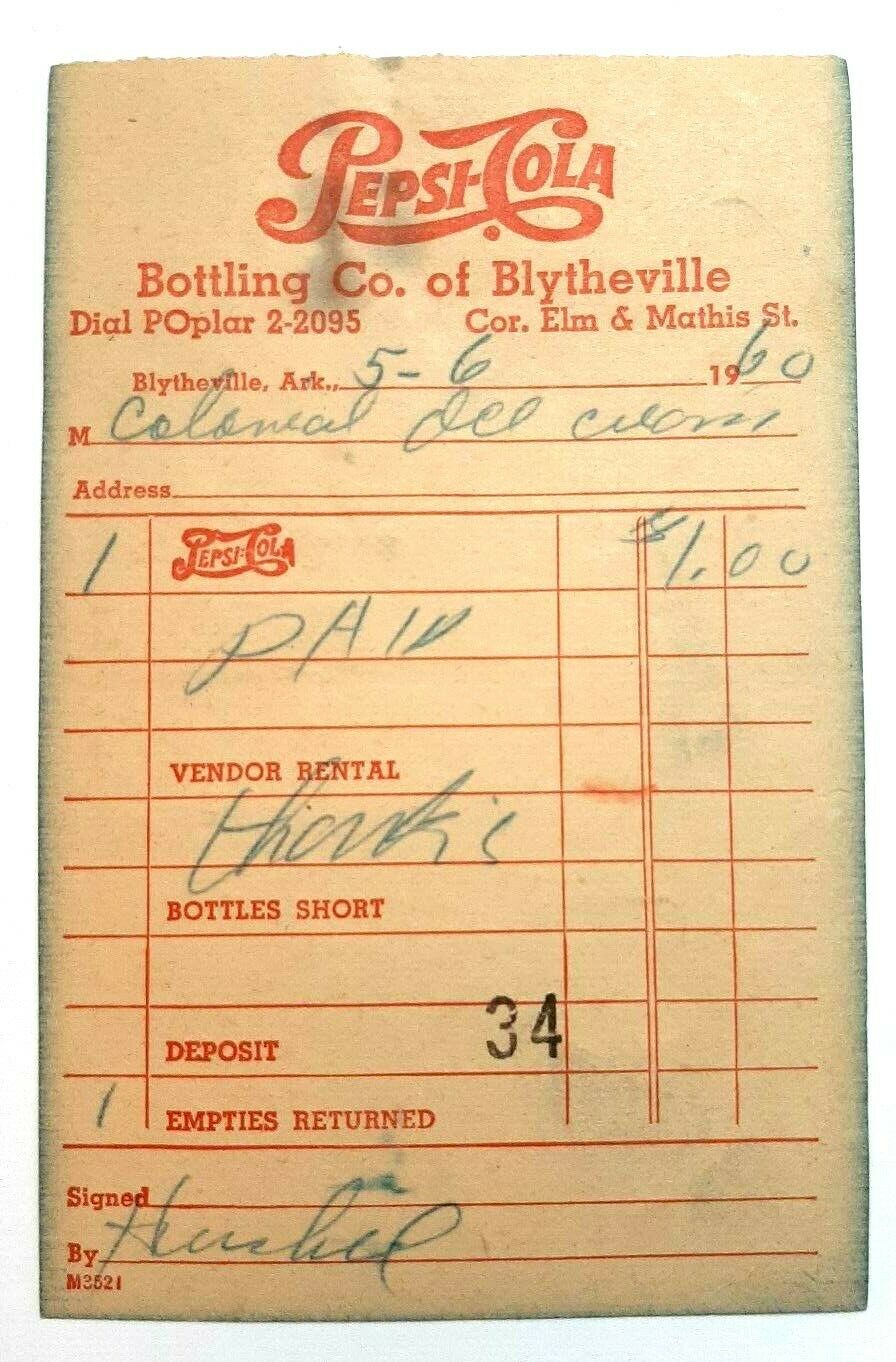 PEPSI-COLA
Bottling Co. of Blytheville
Dial POplar 2-2095 Cor. Elm & Mathis St.
Blytheville, Ark., 5-6 1960
M Colonial
Address
1 PEPSI-COLA $1.00
PAID
VENDOR RENTAL
Thanks
BOTTLES SHORT
DEPOSIT 34
1 EMPTIES RETURNED
Signed
By Hershel
M3521